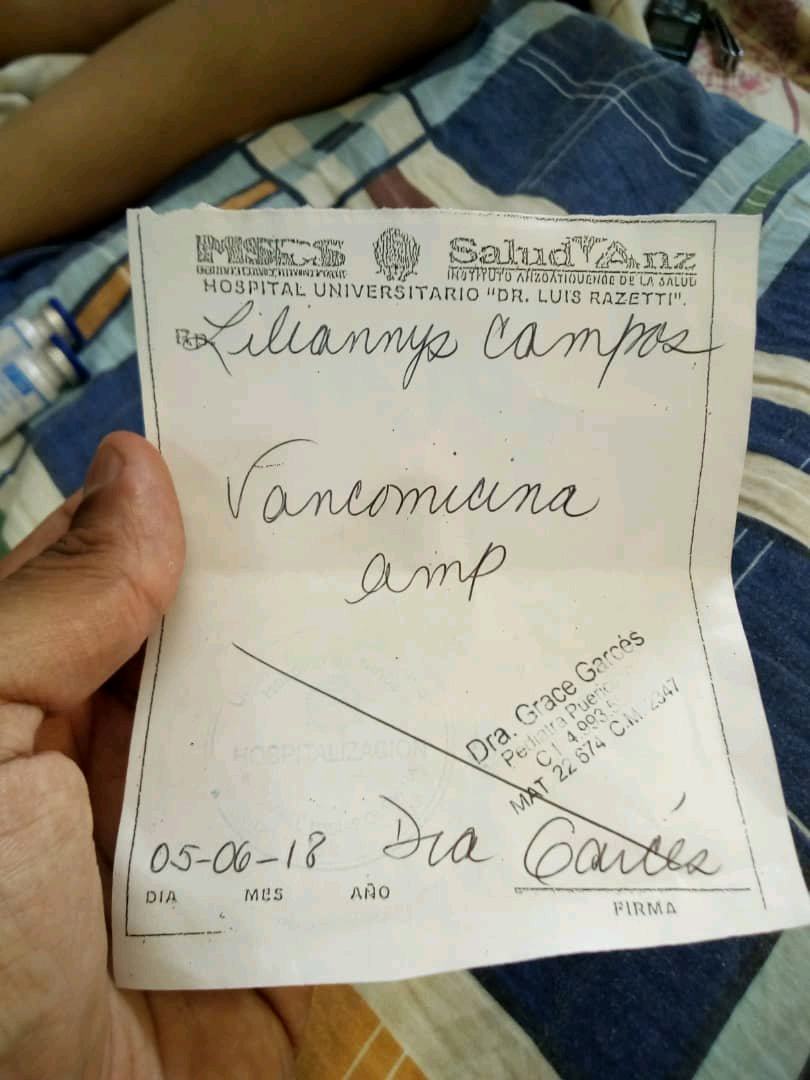 MSCS SaludAnz
INSTITUTO ANZOATIQUENSE DE LA SALUD
HOSPITAL UNIVERSITARIO "DR. LUIS RAZETTI".
Liliannys Campos
Vancomicina
amp
Dra. Grace Garcés
Pediatra
C.I 4.993.
MAT 22 674 C.M. 2347
HOSPITALIZACION
05-06-18 Dra Garcés
DIA MES AÑO
FIRMA